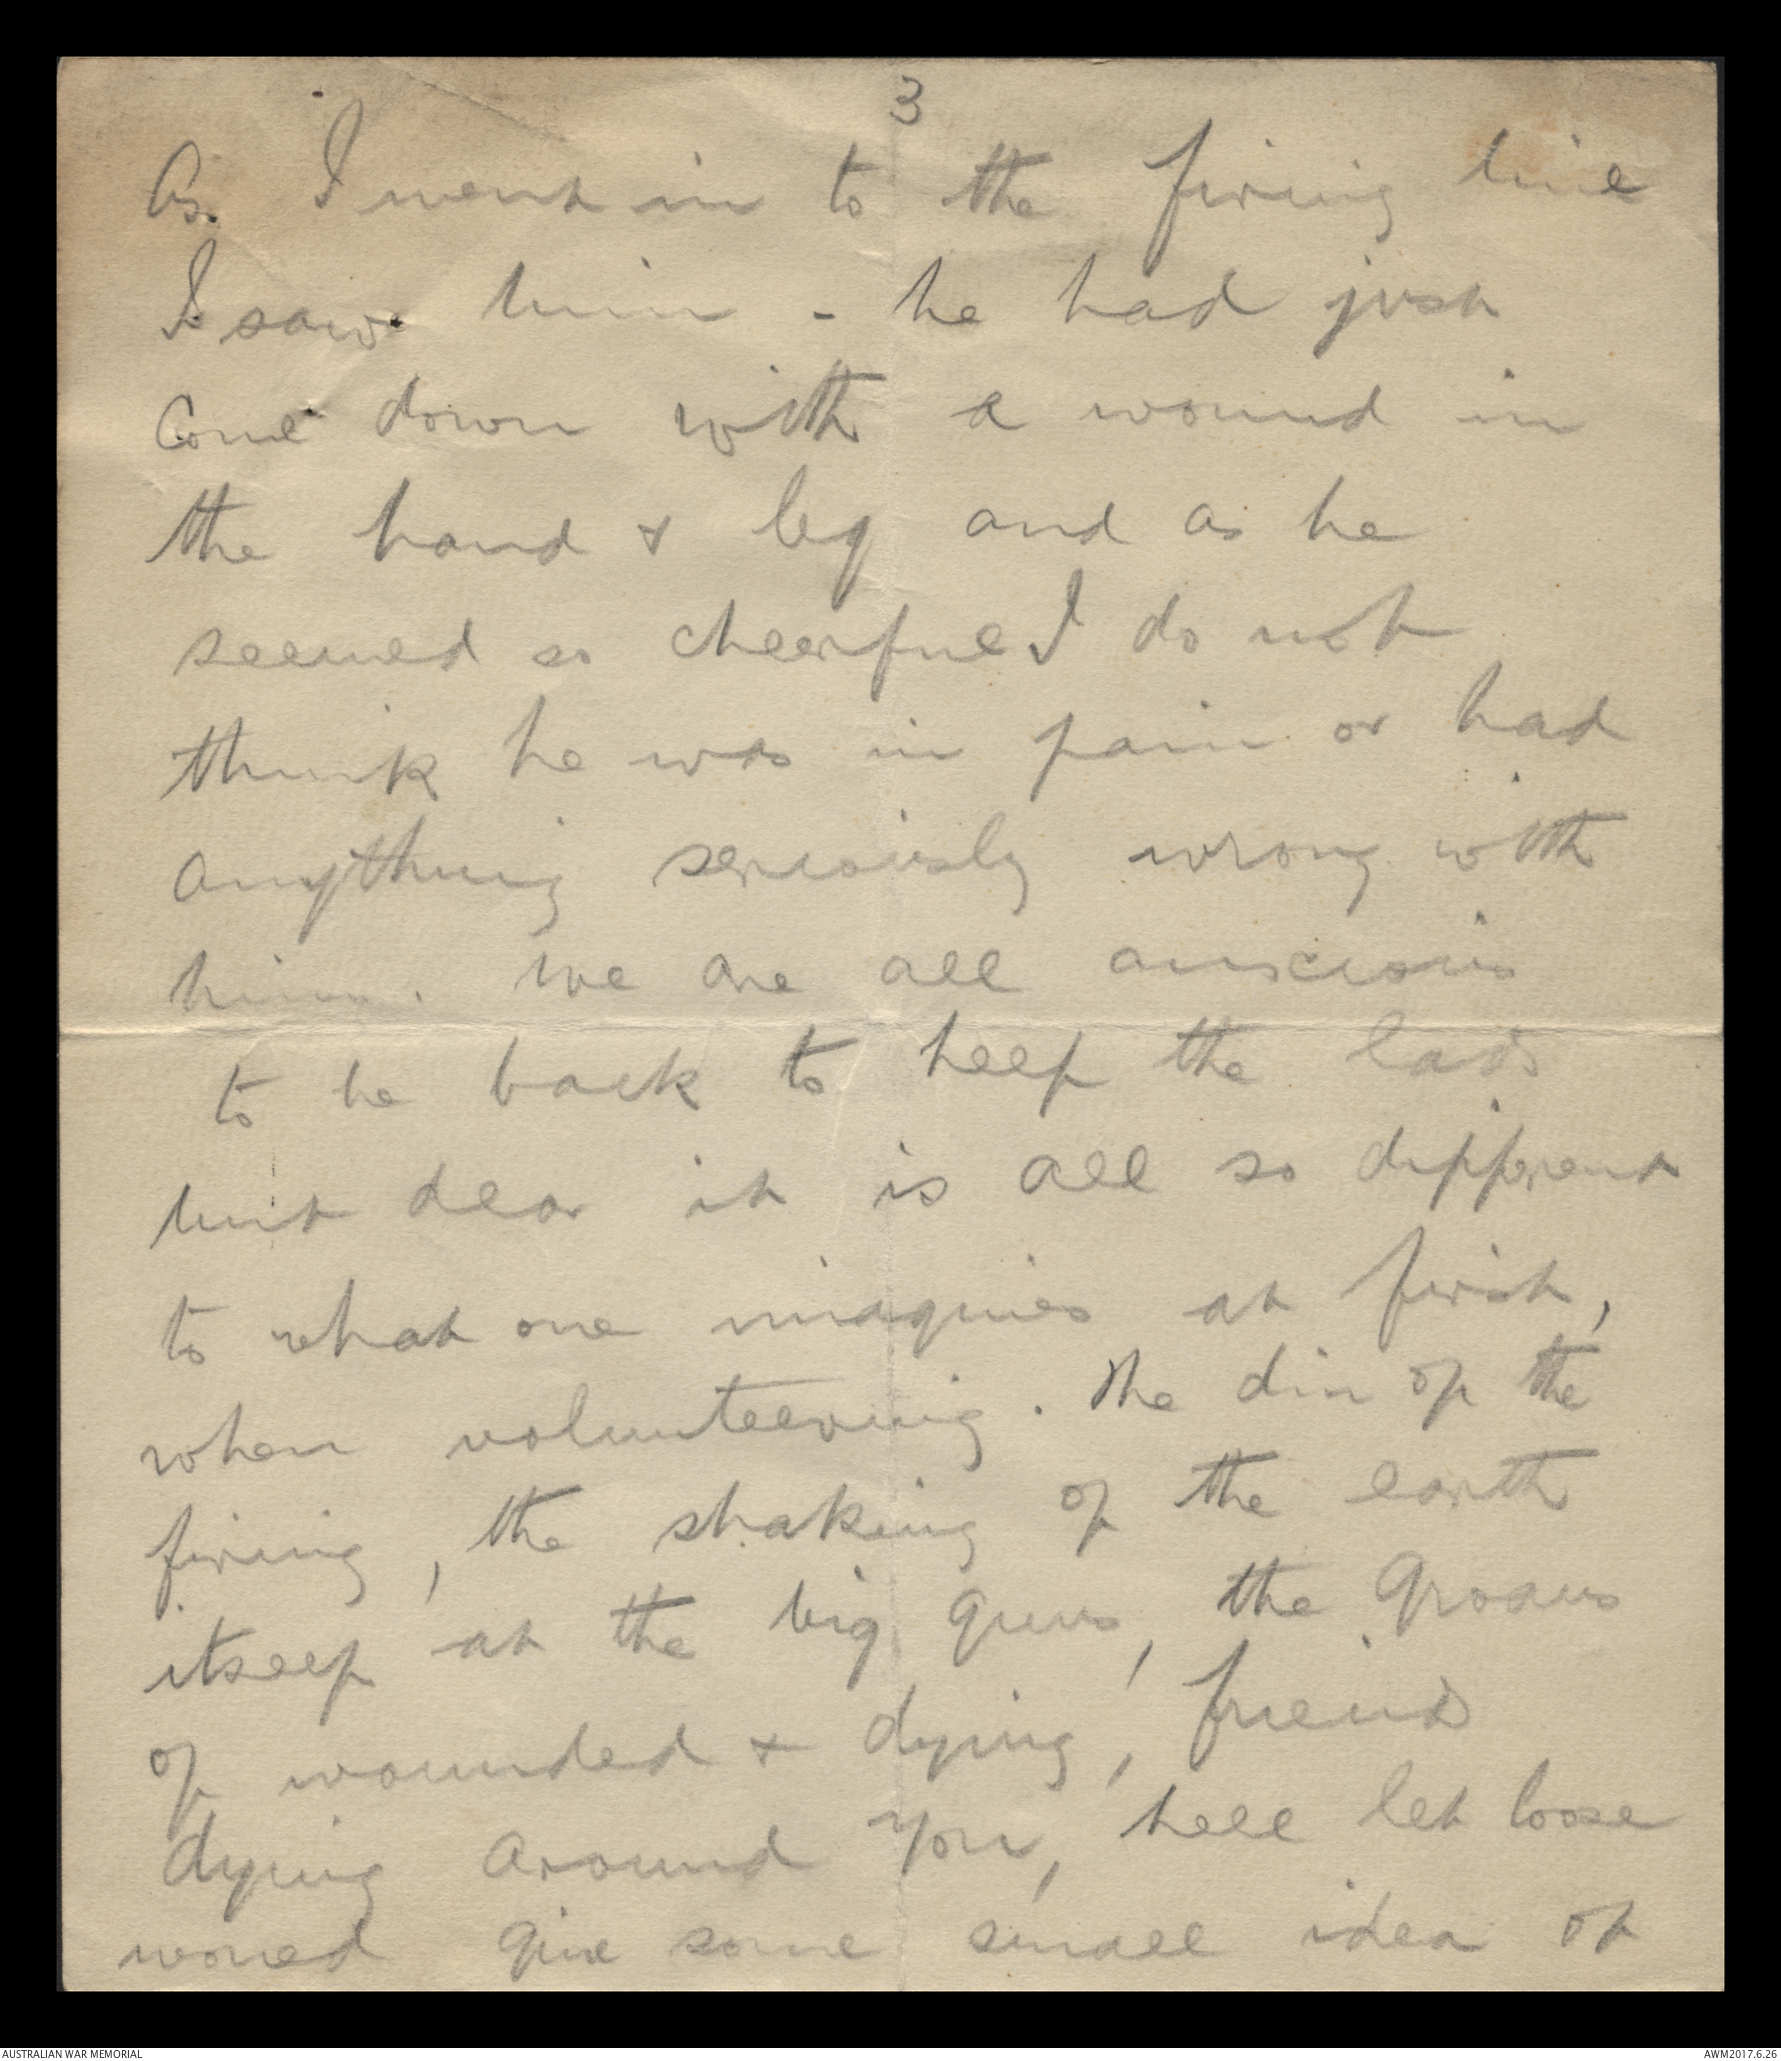 3
As I went in to the firing line
I saw him - he had just
come down with a wound in
the hand & leg and as he
seemed so cheerful I do not
think he was in pain or had
anything seriously wrong with
him. We are all anxious
to be back to help the lads
but dear it is all so different
to what one imagines at first,
when volunteering. The din of the
firing, the shaking of the earth
itself at the big guns, the groans
of wounded & dying, friends
dying around you, hell let loose
would give some small idea of
AUSTRALIAN WAR MEMORIAL
AWM2017.6.26